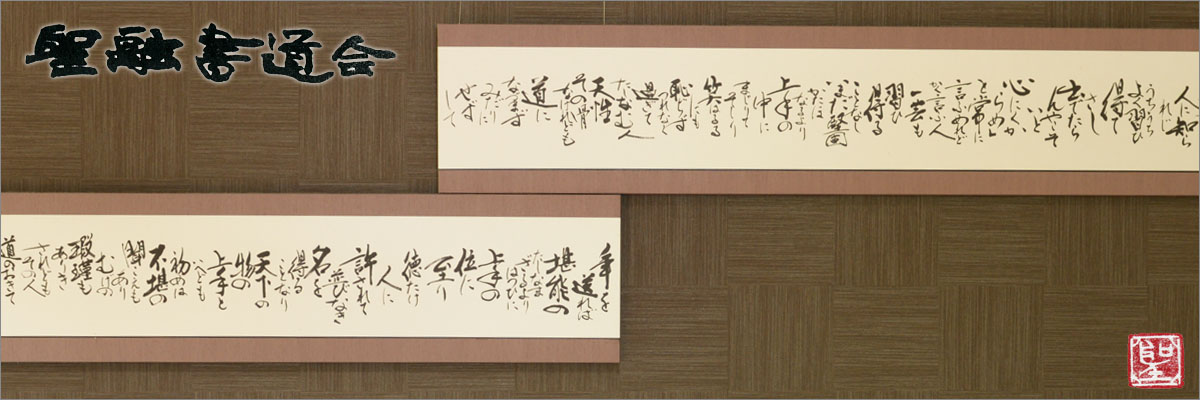 聖融書道会
人に知ら
れじ
うちうち
よく習ひ
得て
さし
出でたら
んやこそ
いと
心にくか
らめ」
と常に
言ふめれど
かく言ふ人
一芸も
習ひ
得る
ことなし
いまだ堅固
かたほ
なるより
上手の
中に
まじりて
そしり
笑はるる
恥ぢず
つれなく
過ぎて
たしなむ人
天性
その骨
なけれども
道に
なづまず
みだりに
せず
して
年を
送れば
堪能の
たしなま
ざるより
はつひに
上手の
位に
至り
徳たけ
人に
許されて
並びなき
名を
得る
ことなり
天下の
物の
上手と
いへども
初めは
不堪の
聞こえも
あり
むげの
瑕瑾も
ありき
されども
その人
道のおきて
聖